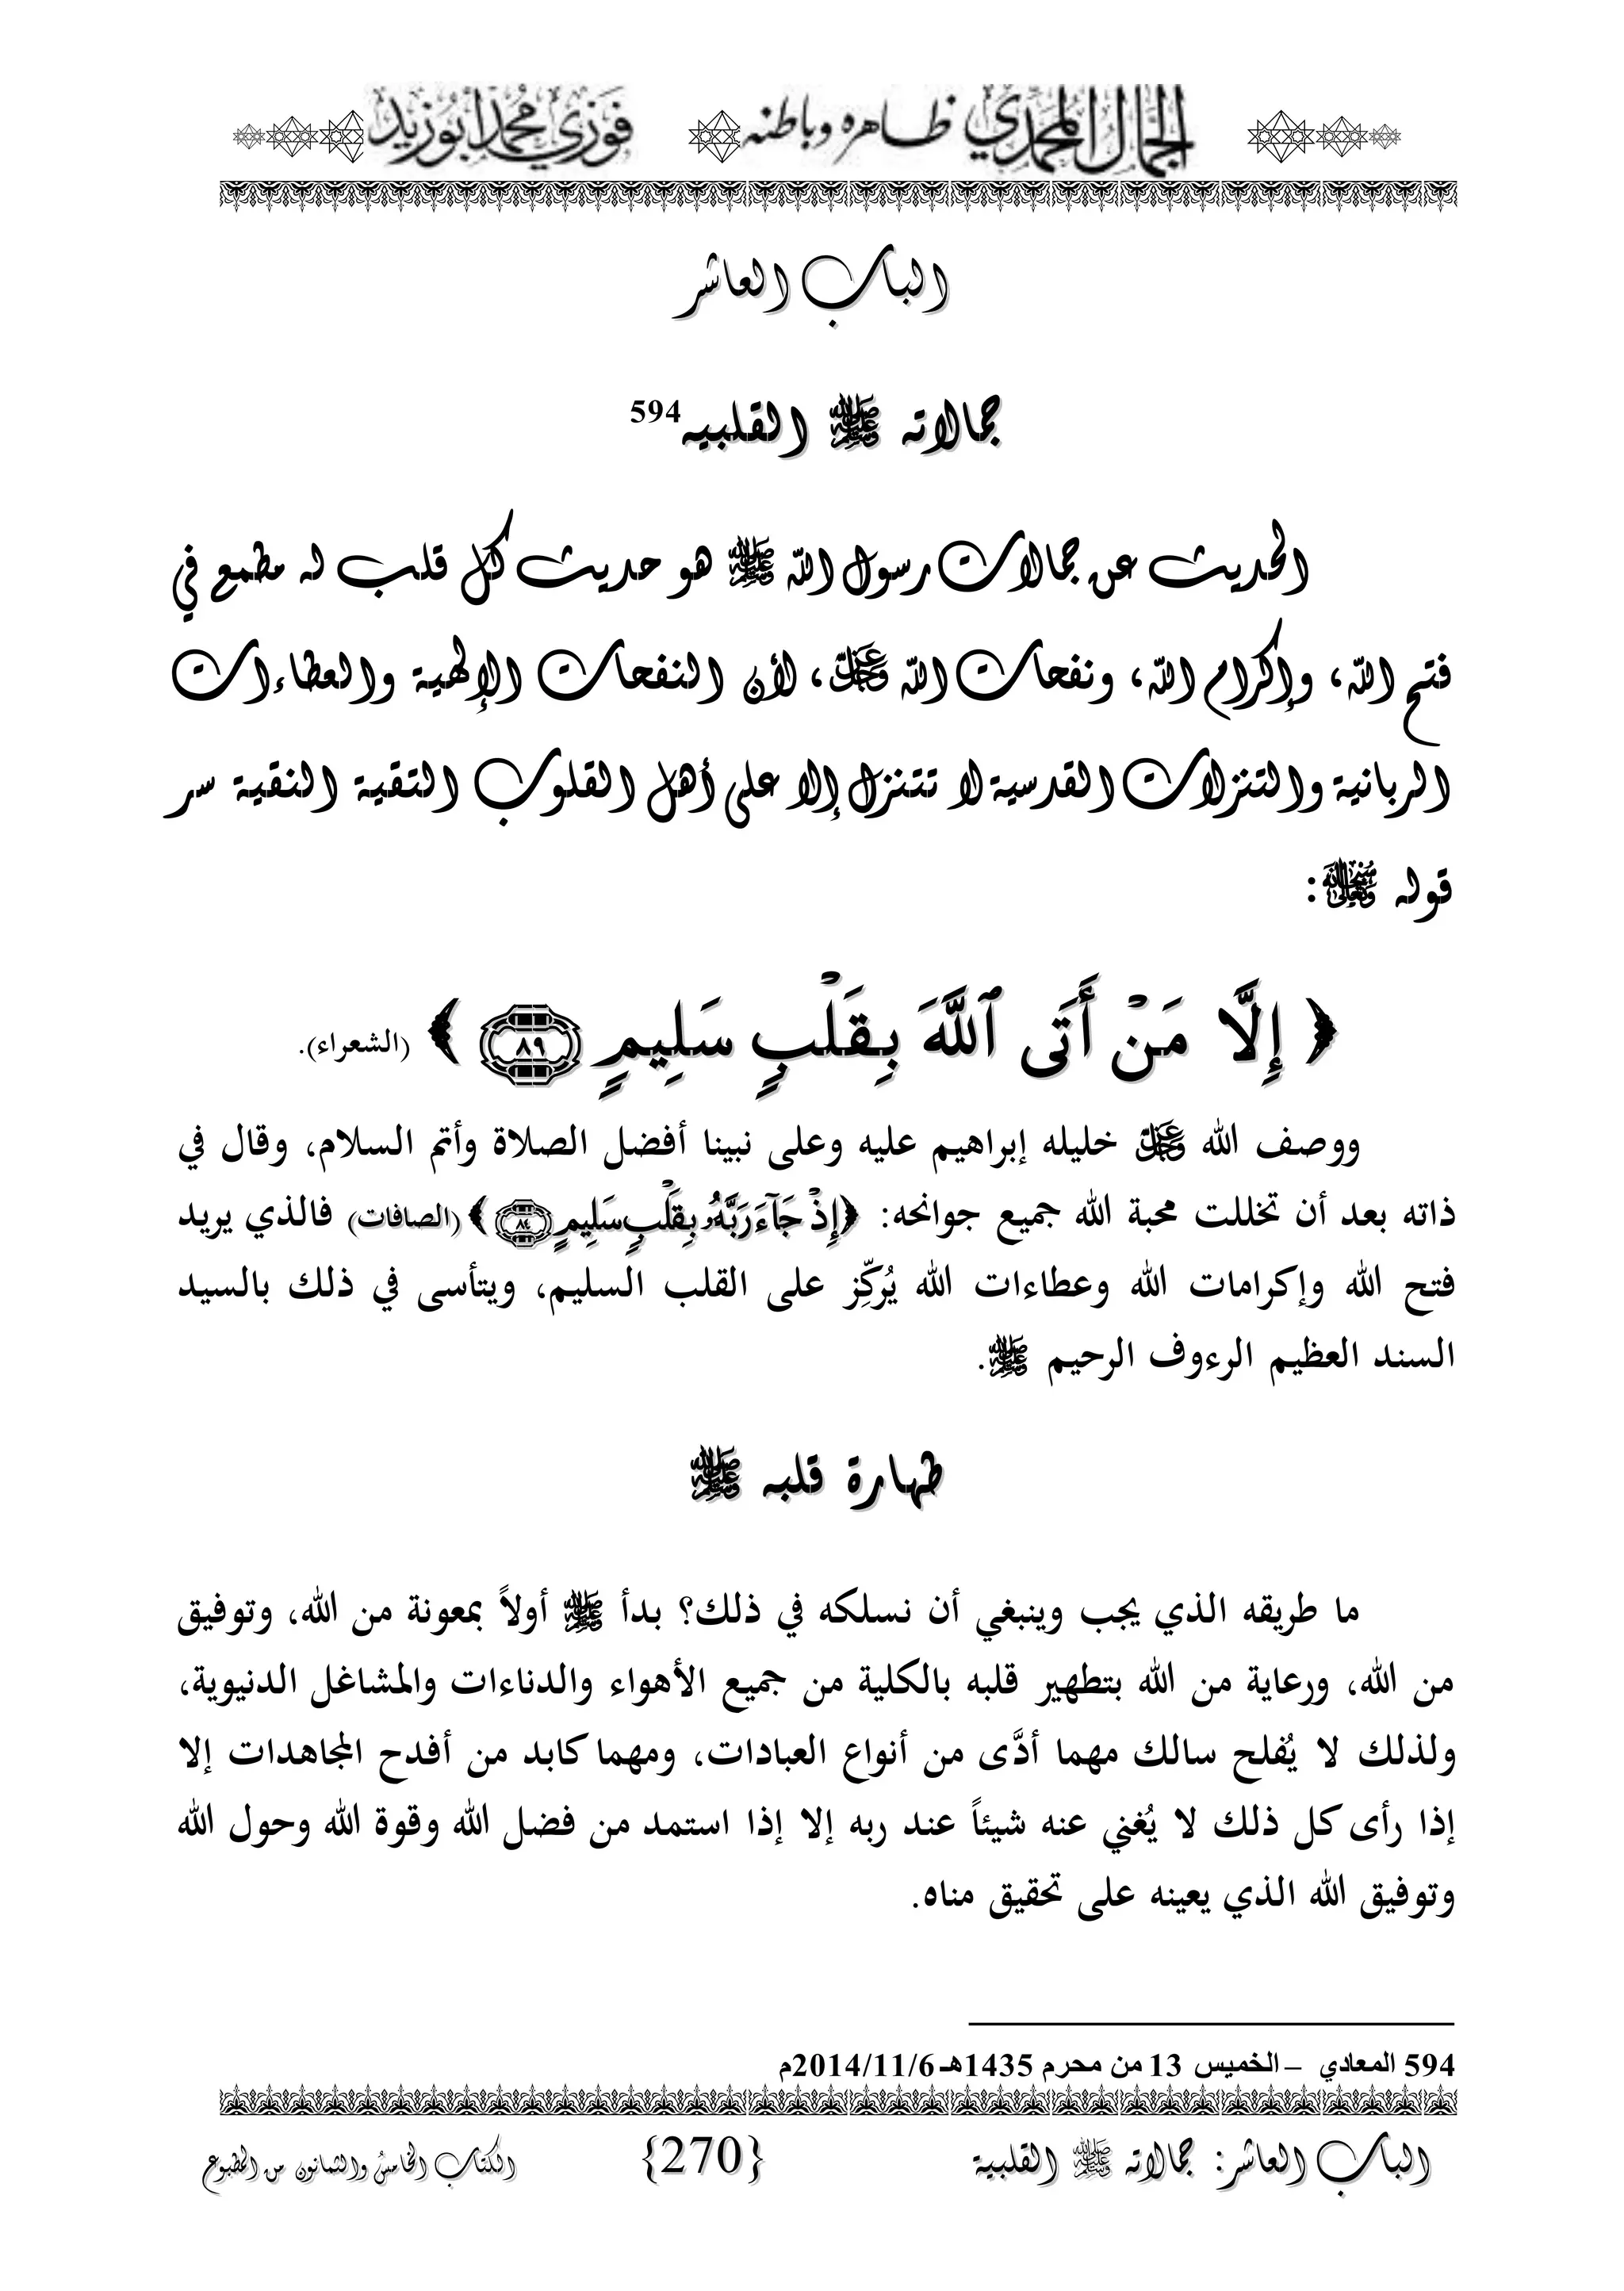 الجمال المحمدي ظاهره وباطنه فوزي محمد أبوزيد
الباب العاشر
جمالاته ﷺ القلبيه594
الحديث عن جمالات رسول الله ﷺ هو حديث كل قلب له مطمع في
فتح الله، وإكرام الله، ونفحات الله عز وجل، لأن النفحات الإلهية والعطاءات
الربانية والتنزلات القدسية لا تتنزل إلا على أهل القلوب التقية النقية سر
قوله سبحانه وتعالى:
﴿ إِلَّا مَنْ أَتَى ٱللَّهَ بِقَلْبٍ سَلِيمٍ ٨٩ ﴾ (الشعراء).
ووصف الله عز وجل خليله إبراهيم عليه وعلى نبينا أفضل الصلاة وأتم السلام، وقال في
ذاته بعد أن تخللت محبة الله جميع جوانحه: ﴿إِذْ جَآءَ رَبَّهُۥ بِقَلْبٍ سَلِيمٍ ٨٤ ﴾ (الصافات) فالذي يريد
فتح الله وإكرامات الله وعطاءات الله يُركِّز على القلب السليم، ويتأسى في ذلك بالسيد
السند العظيم الرءوف الرحيم ﷺ.
طهارة قلبه ﷺ
ما طريقه الذي يجب وينبغي أن نسلكه في ذلك؟ بدأ ﷺ أولاً بمعونة من الله، وتوفيق
من الله، ورعاية من الله بتطهير قلبه بالكلية من جميع الأهواء والدناءات والمشاغل الدنيوية،
ولذلك لا يُفلح سالك مهما أدَّى من أنواع العبادات، ومهما كابد من أفدح المجاهدات إلا
إذا رأى كل ذلك لا يُغني عنه شيئاً عند ربه إلا إذا استمد من فضل الله وقوة الله وحول الله
وتوفيق الله الذي يعينه على تحقيق مناه.
594 المعادي – الخميس 13 من محرم 1435هـ 2014/11/6م
الباب العاشر: جمالاته ﷺ القلبية {270} الكتاب الخامس والثمانون من المطبوع